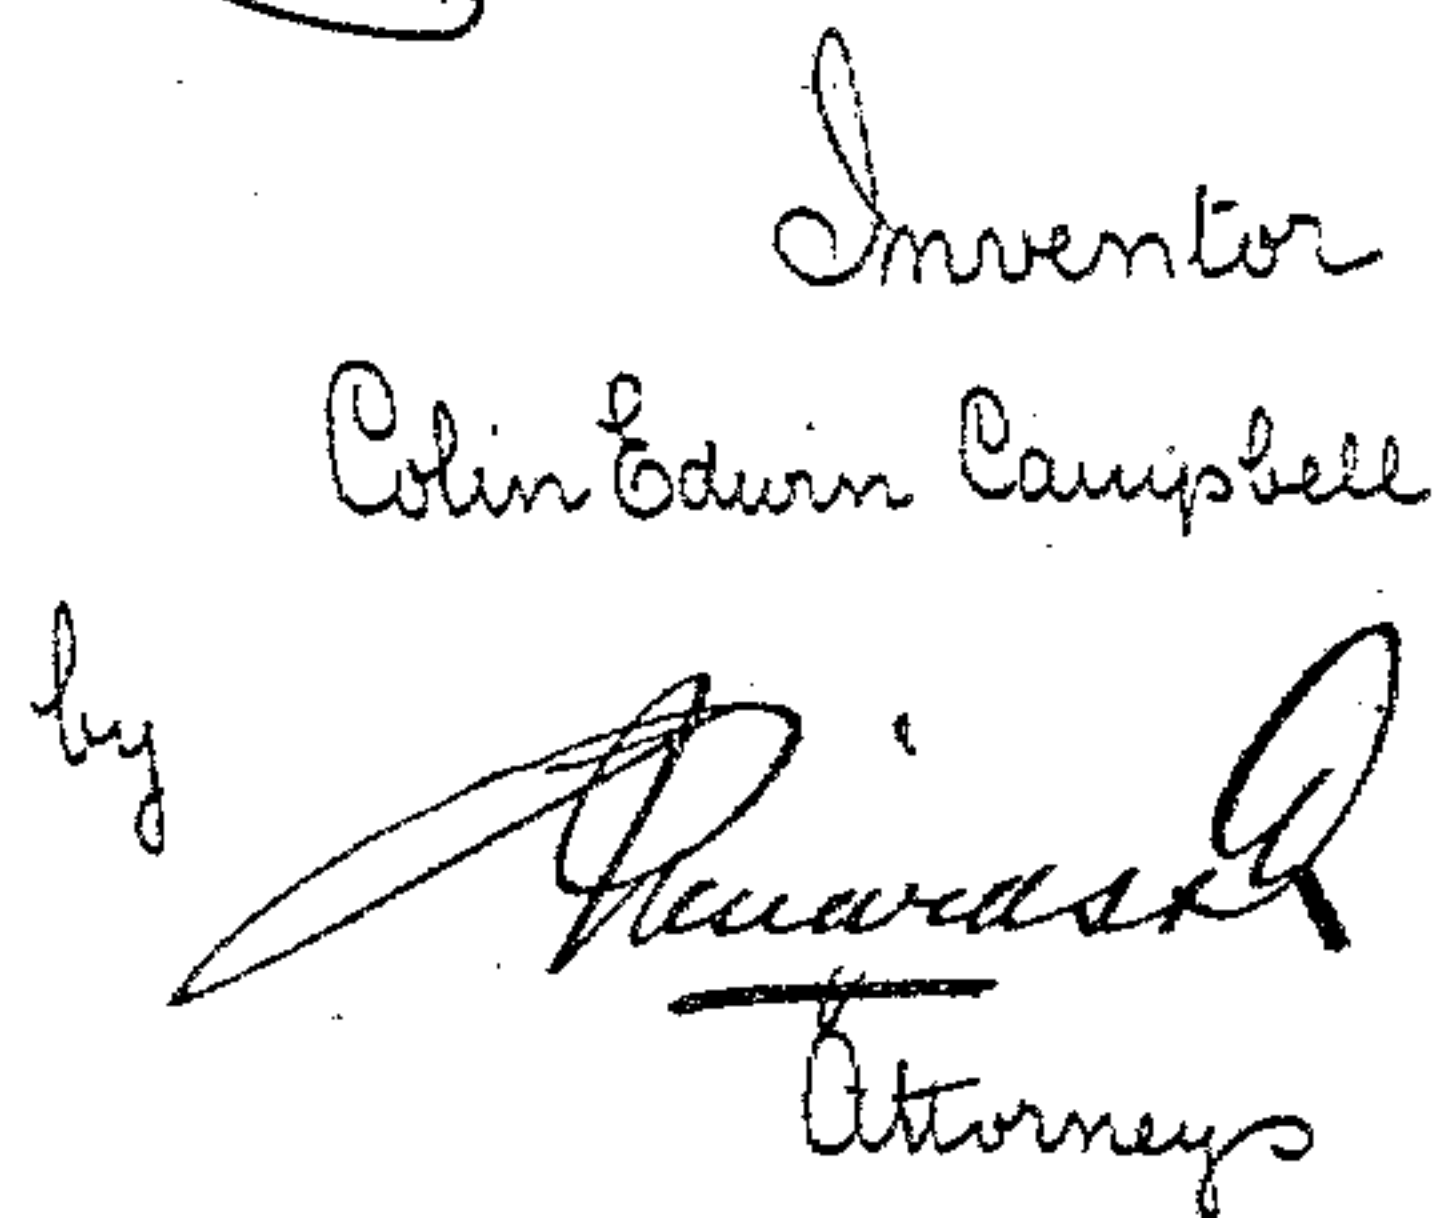 Inventor
Colin Edwin Campbell
by
Attorneys